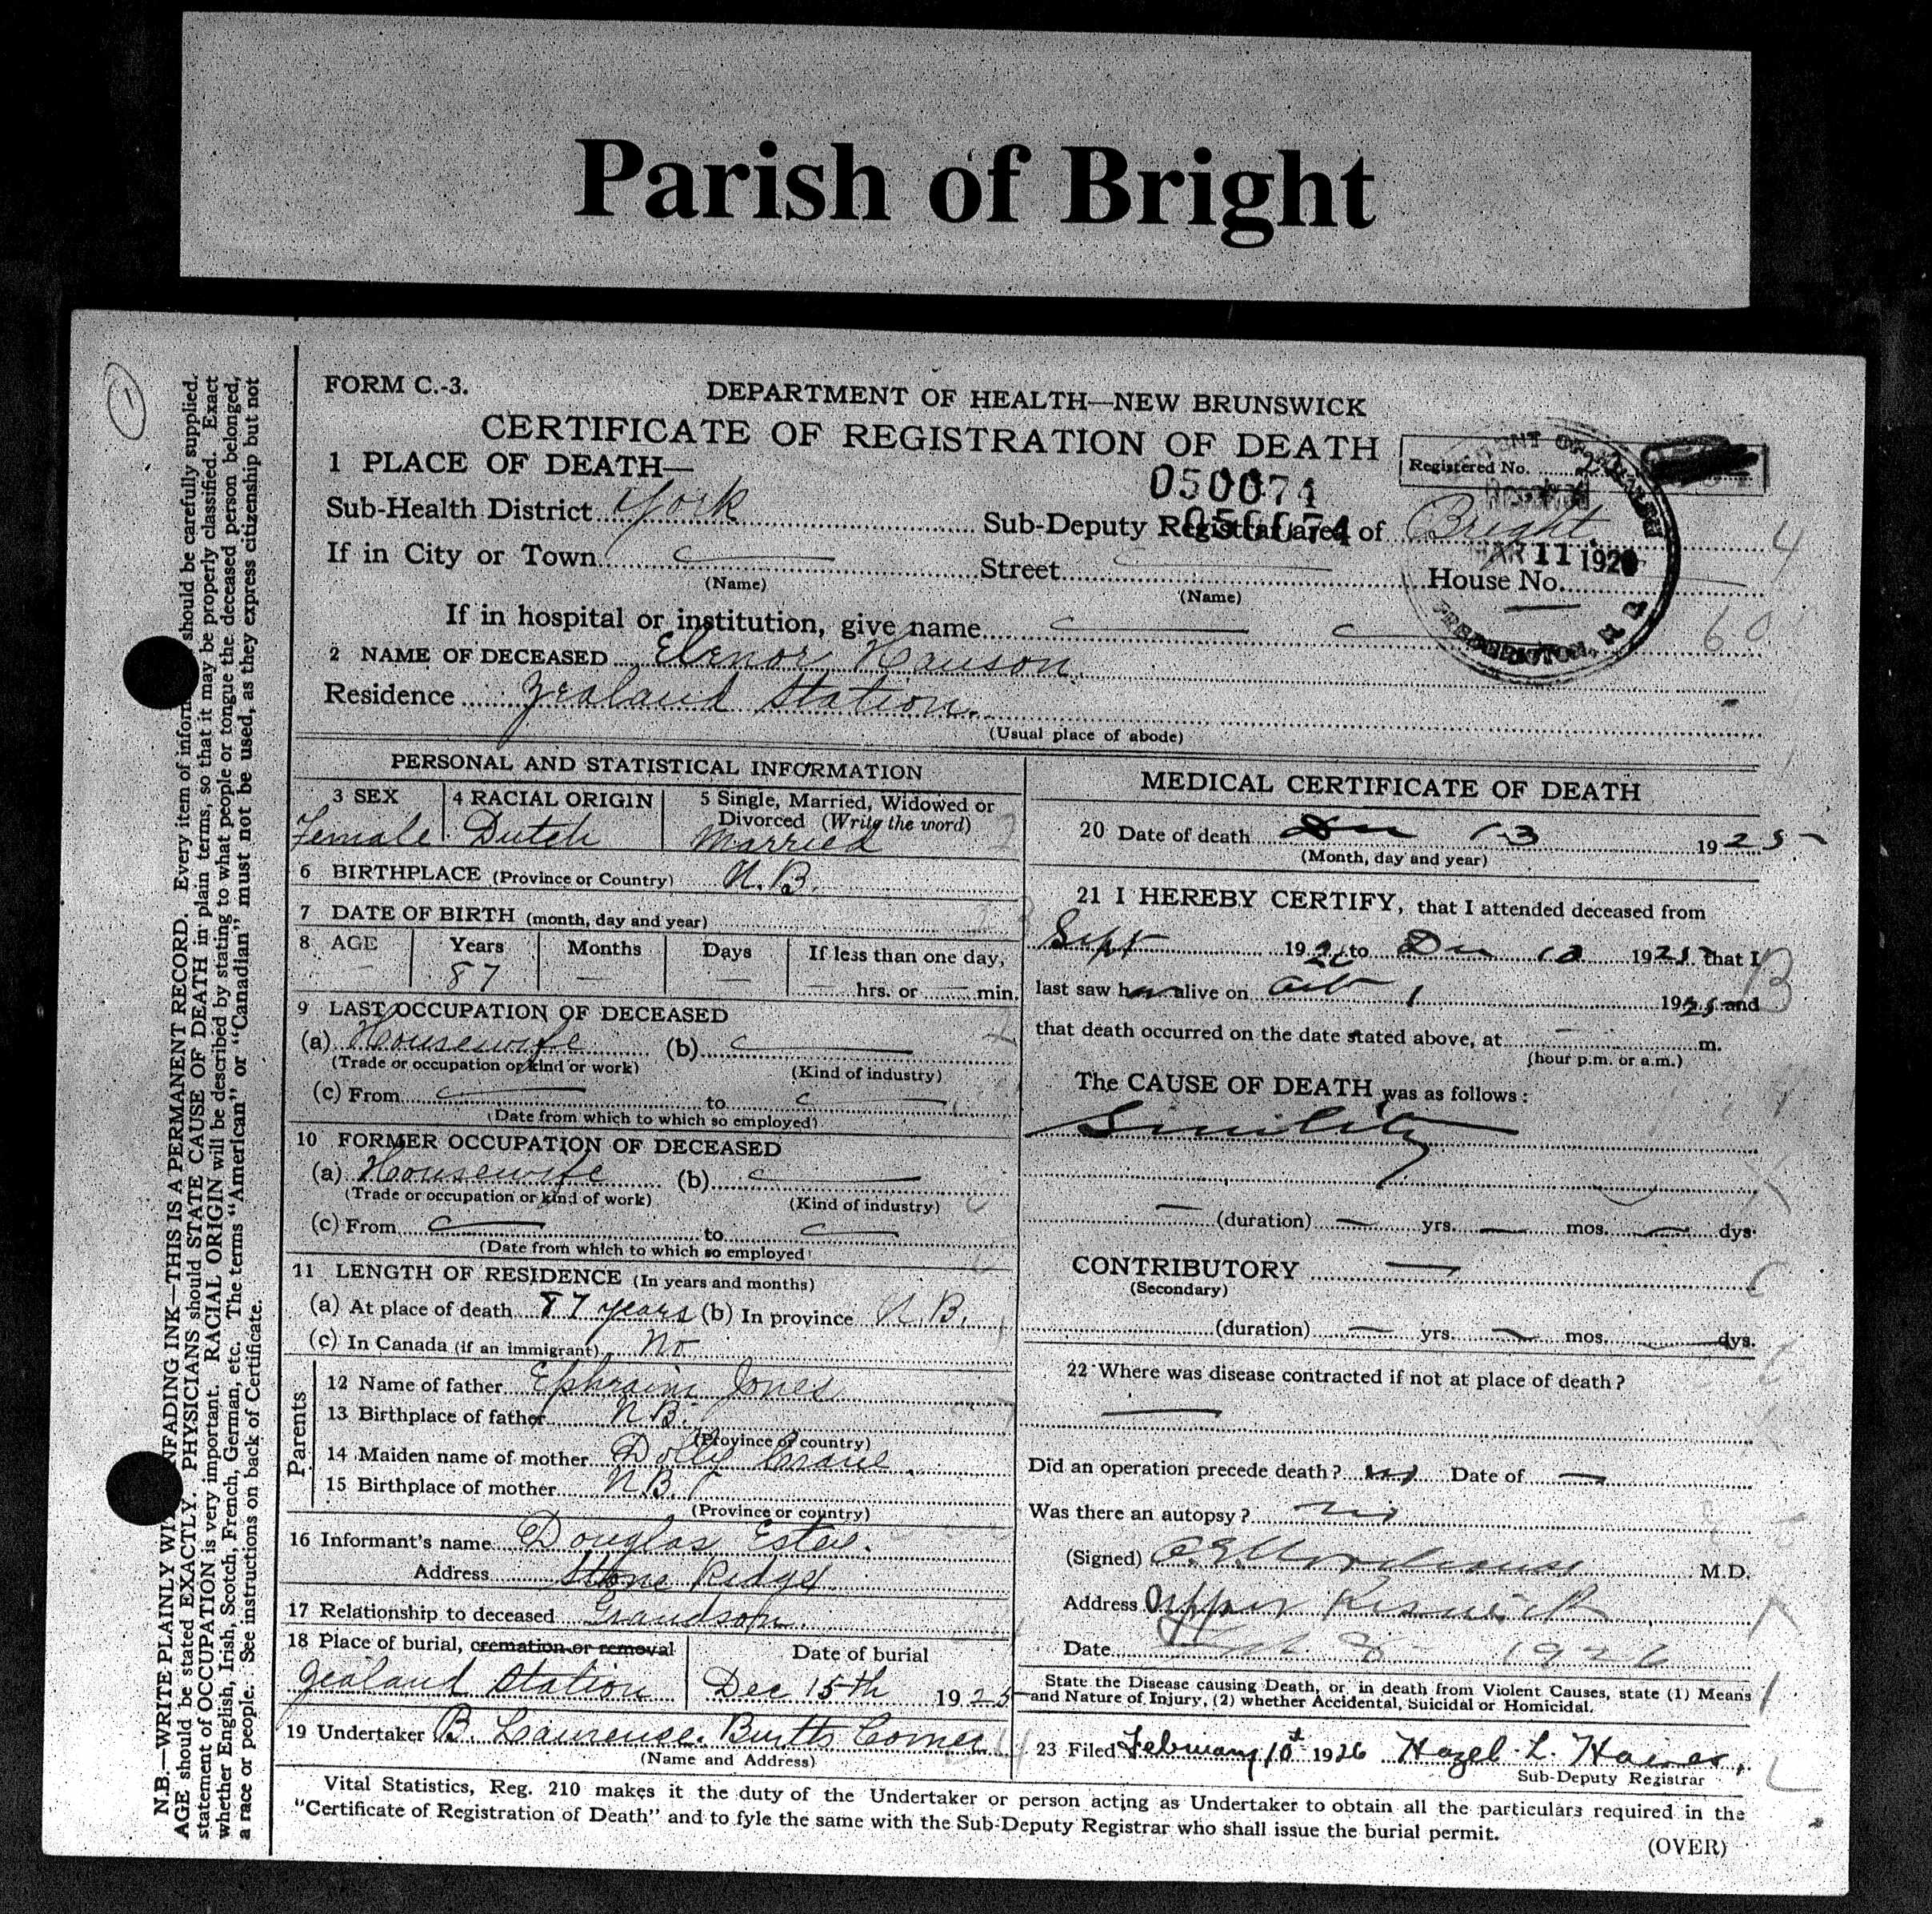 Parish of Bright
FORM C.-3.
DEPARTMENT OF HEALTH—NEW BRUNSWICK
CERTIFICATE OF REGISTRATION OF DEATH
Registered No.
1 PLACE OF DEATH—
050074
Sub-Health District York Sub-Deputy Registrar area of Bright 4
050074
MAR 11 192
If in City or Town Street House No.
(Name) (Name)
If in hospital or institution, give name
FREDERICTON, N B
60
2 NAME OF DECEASED Elenor Hanson
Residence Zealand Station.
(Usual place of abode)
PERSONAL AND STATISTICAL INFORMATION
3 SEX 4 RACIAL ORIGIN 5 Single, Married, Widowed or
Divorced (Write the word)
Female Dutch Married
6 BIRTHPLACE (Province or Country) N.B.
7 DATE OF BIRTH (month, day and year)
8 AGE Years Months Days If less than one day,
— 87 — — — hrs. or — min.
9 LAST OCCUPATION OF DECEASED
(a) Housewife (b)
(Trade or occupation or kind or work) (Kind of industry)
(c) From to
(Date from which to which so employed)
10 FORMER OCCUPATION OF DECEASED
(a) Housewife (b)
(Trade or occupation or kind of work) (Kind of industry)
(c) From to
(Date from which to which so employed)
11 LENGTH OF RESIDENCE (In years and months)
(a) At place of death 87 years (b) In province N.B.
(c) In Canada (if an immigrant) No
Parents
12 Name of father Ephraim Jones
13 Birthplace of father N.B.
(Province or country)
14 Maiden name of mother Dolly
15 Birthplace of mother N.B.
(Province or country)
16 Informant's name Douglas Estey.
Address Stone Ridge
17 Relationship to deceased Grandson
18 Place of burial, cremation or removal Date of burial
Zealand Station Dec 15th 1925
19 Undertaker B. Laurence. Burtts Corner
(Name and Address)
MEDICAL CERTIFICATE OF DEATH
20 Date of death Dec 13 1925
(Month, day and year)
21 I HEREBY CERTIFY, that I attended deceased from
Sept 192 to Dec 1925 that I
last saw her alive on Oct 1 1925 and
that death occurred on the date stated above, at — m.
(hour p.m. or a.m.)
The CAUSE OF DEATH was as follows:
Senility
— (duration) — yrs. — mos. — dys.
CONTRIBUTORY —
(Secondary)
(duration) — yrs. — mos. — dys.
22 Where was disease contracted if not at place of death?
—
Did an operation precede death? no Date of —
Was there an autopsy? no
(Signed) Morehouse M.D.
Address Upper Keswick
Date 8 1926
State the Disease causing Death, or, in death from Violent Causes, state (1) Means
and Nature of Injury, (2) whether Accidental, Suicidal or Homicidal.
23 Filed February 10th 1926 Hazel L. Haines,
Sub-Deputy Registrar
Vital Statistics, Reg. 210 makes it the duty of the Undertaker or person acting as Undertaker to obtain all the particulars required in the
"Certificate of Registration of Death" and to fyle the same with the Sub-Deputy Registrar who shall issue the burial permit.
(OVER)
N.B.—WRITE PLAINLY WI NFADING INK—THIS IS A PERMANENT RECORD. Every item of inform should be carefully supplied.
AGE should be stated EXACTLY. PHYSICIANS should STATE CAUSE OF DEATH in plain terms, so that it may be properly classified. Exact
statement of OCCUPATION is very important. RACIAL ORIGIN will be described by stating to what people or tongue the deceased person belonged,
whether English, Irish, Scotch, French, German, etc. The terms "American" or "Canadian" must not be used, as they express citizenship but not
a race or people. See instructions on back of Certificate.